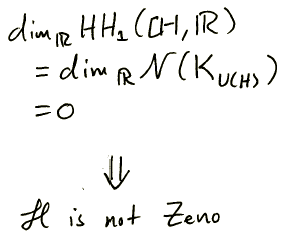 dim_ℝ HH₁(ℍ, ℝ)
= dim_ℝ 𝒩(K_{U(H)})
= 0
⇓
ℋ is not Zeno